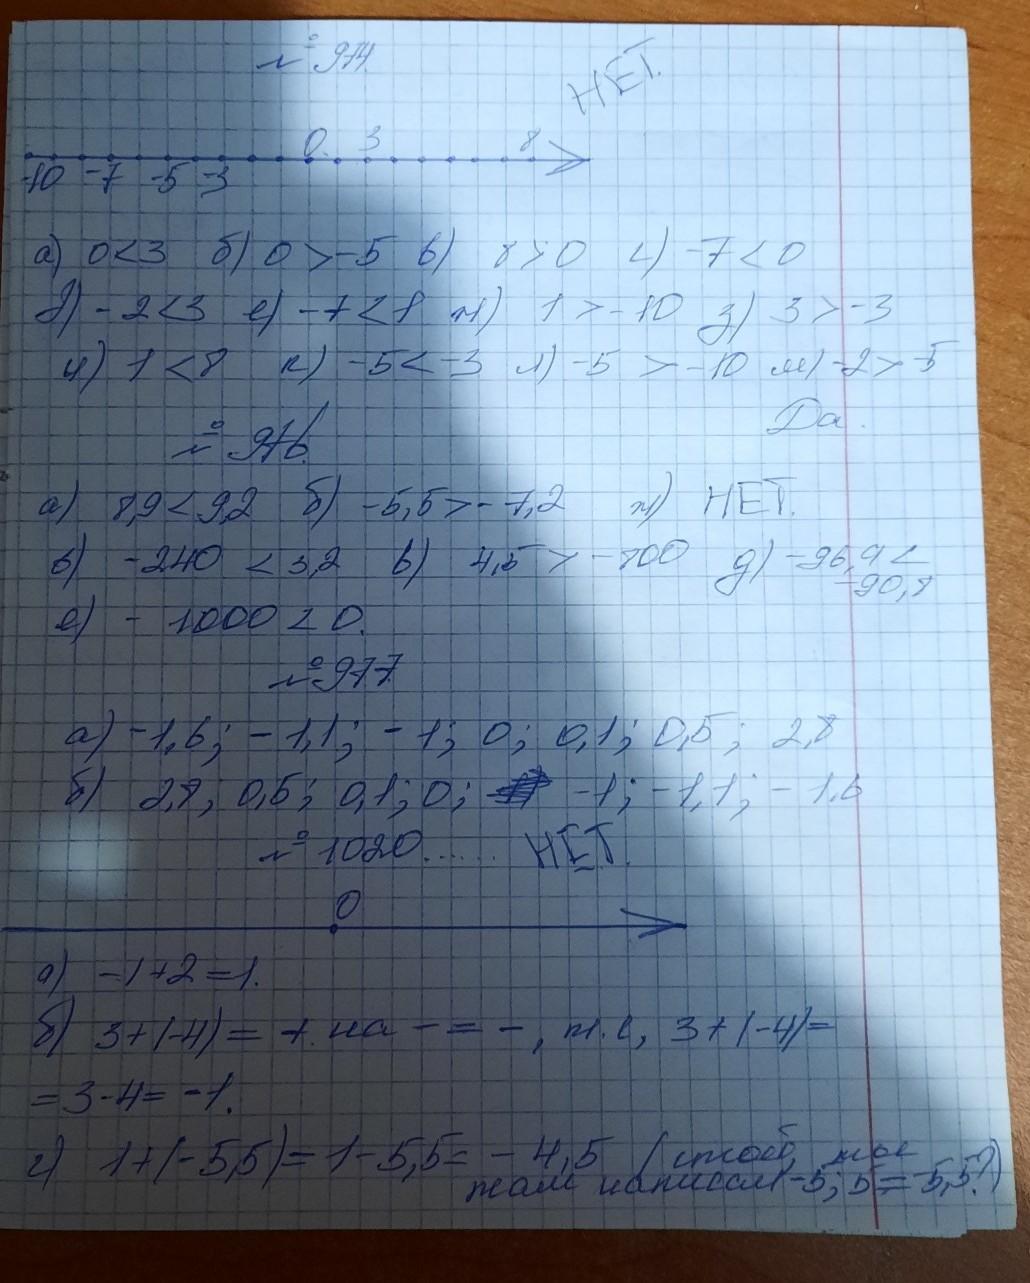 № 974.
НЕТ.
0 3 8
-10 -7 -5 -3
а) 0<3 б) 0 >-5 в) 8>0 г) -7<0
д) -2<3 е) -7<1 ж) 1 >-10 з) 3 >-3
и) 1 <8 к) -5<-3 л) -5 > -10 м) -2>-5
Да.
№ 976.
а) 8,9<9,2 б) -5,5>-7,2 ж) НЕТ.
в) -240 <3,2 в) 4,5 >-800 д) -96,9<
-90,8
е) - 1000 < 0.
№ 977.
а) -1,6; -1,1; -1; 0; 0,1; 0,5; 2,8
б) 2,8; 0,5; 0,1; 0; -1; -1,1; -1,6
№ 1020...... НЕТ.
0
а) -1+2=1.
б) 3+(-4)= + на - = -, т.е, 3+(-4)=
=3-4= -1.
г) 1+(-5,5)=1-5,5= - 4,5
там написал -5; 5 = -5,5?)